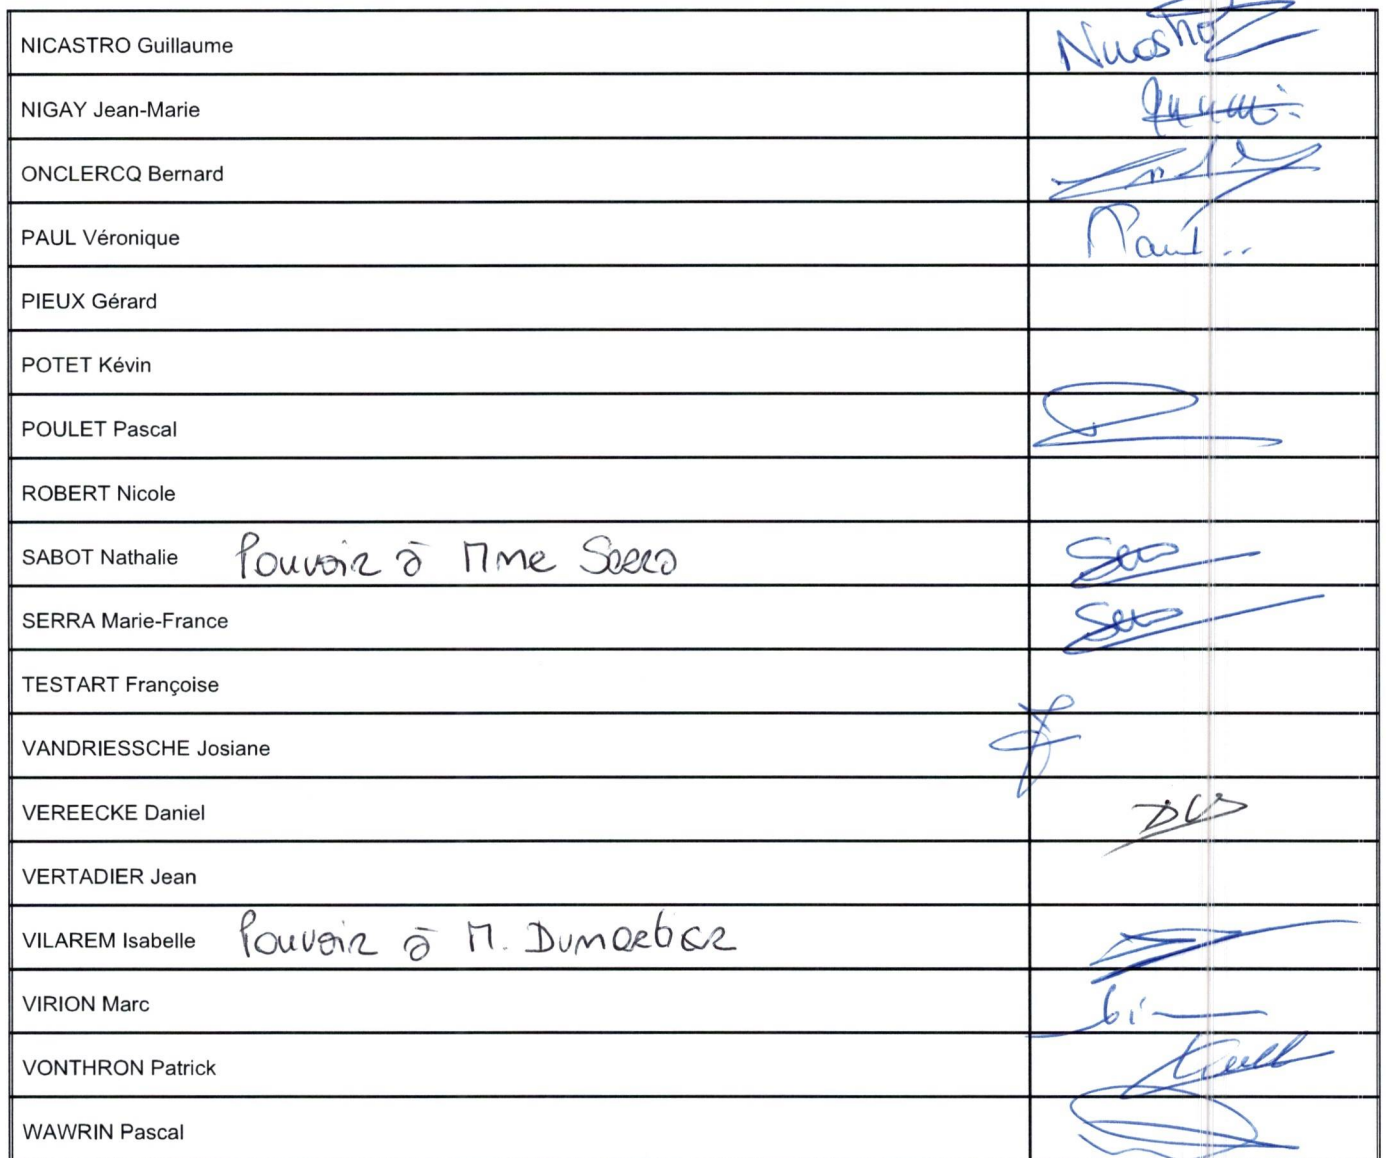 NICASTRO Guillaume Nicastro
NIGAY Jean-Marie
ONCLERCQ Bernard
PAUL Véronique Paul
PIEUX Gérard
POTET Kévin
POULET Pascal
ROBERT Nicole
SABOT Nathalie Pouvoir à Mme Serra
SERRA Marie-France
TESTART Françoise
VANDRIESSCHE Josiane
VEREECKE Daniel
VERTADIER Jean
VILAREM Isabelle Pouvoir à M. Dumortier
VIRION Marc
VONTHRON Patrick
WAWRIN Pascal